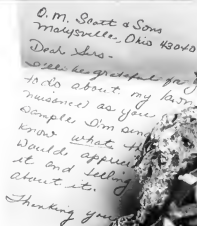 O. M. Scott & Sons
Marysville, Ohio 43040
Dear Sirs -
I'll be grateful for
to do about my lawn
nuisance) as you
samples I'm send
know what th
Would apprec
it and telling
about it.
Thanking you